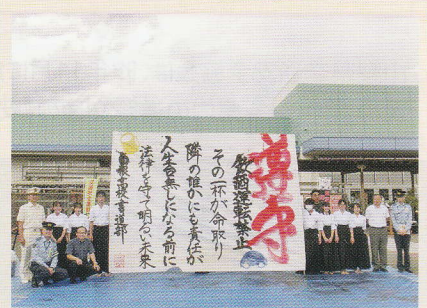 遵守
飲酒運転禁止
その一杯が命取り
隣の誰かにも責任が
人生台無しになる前に
法律を守って明るい未来